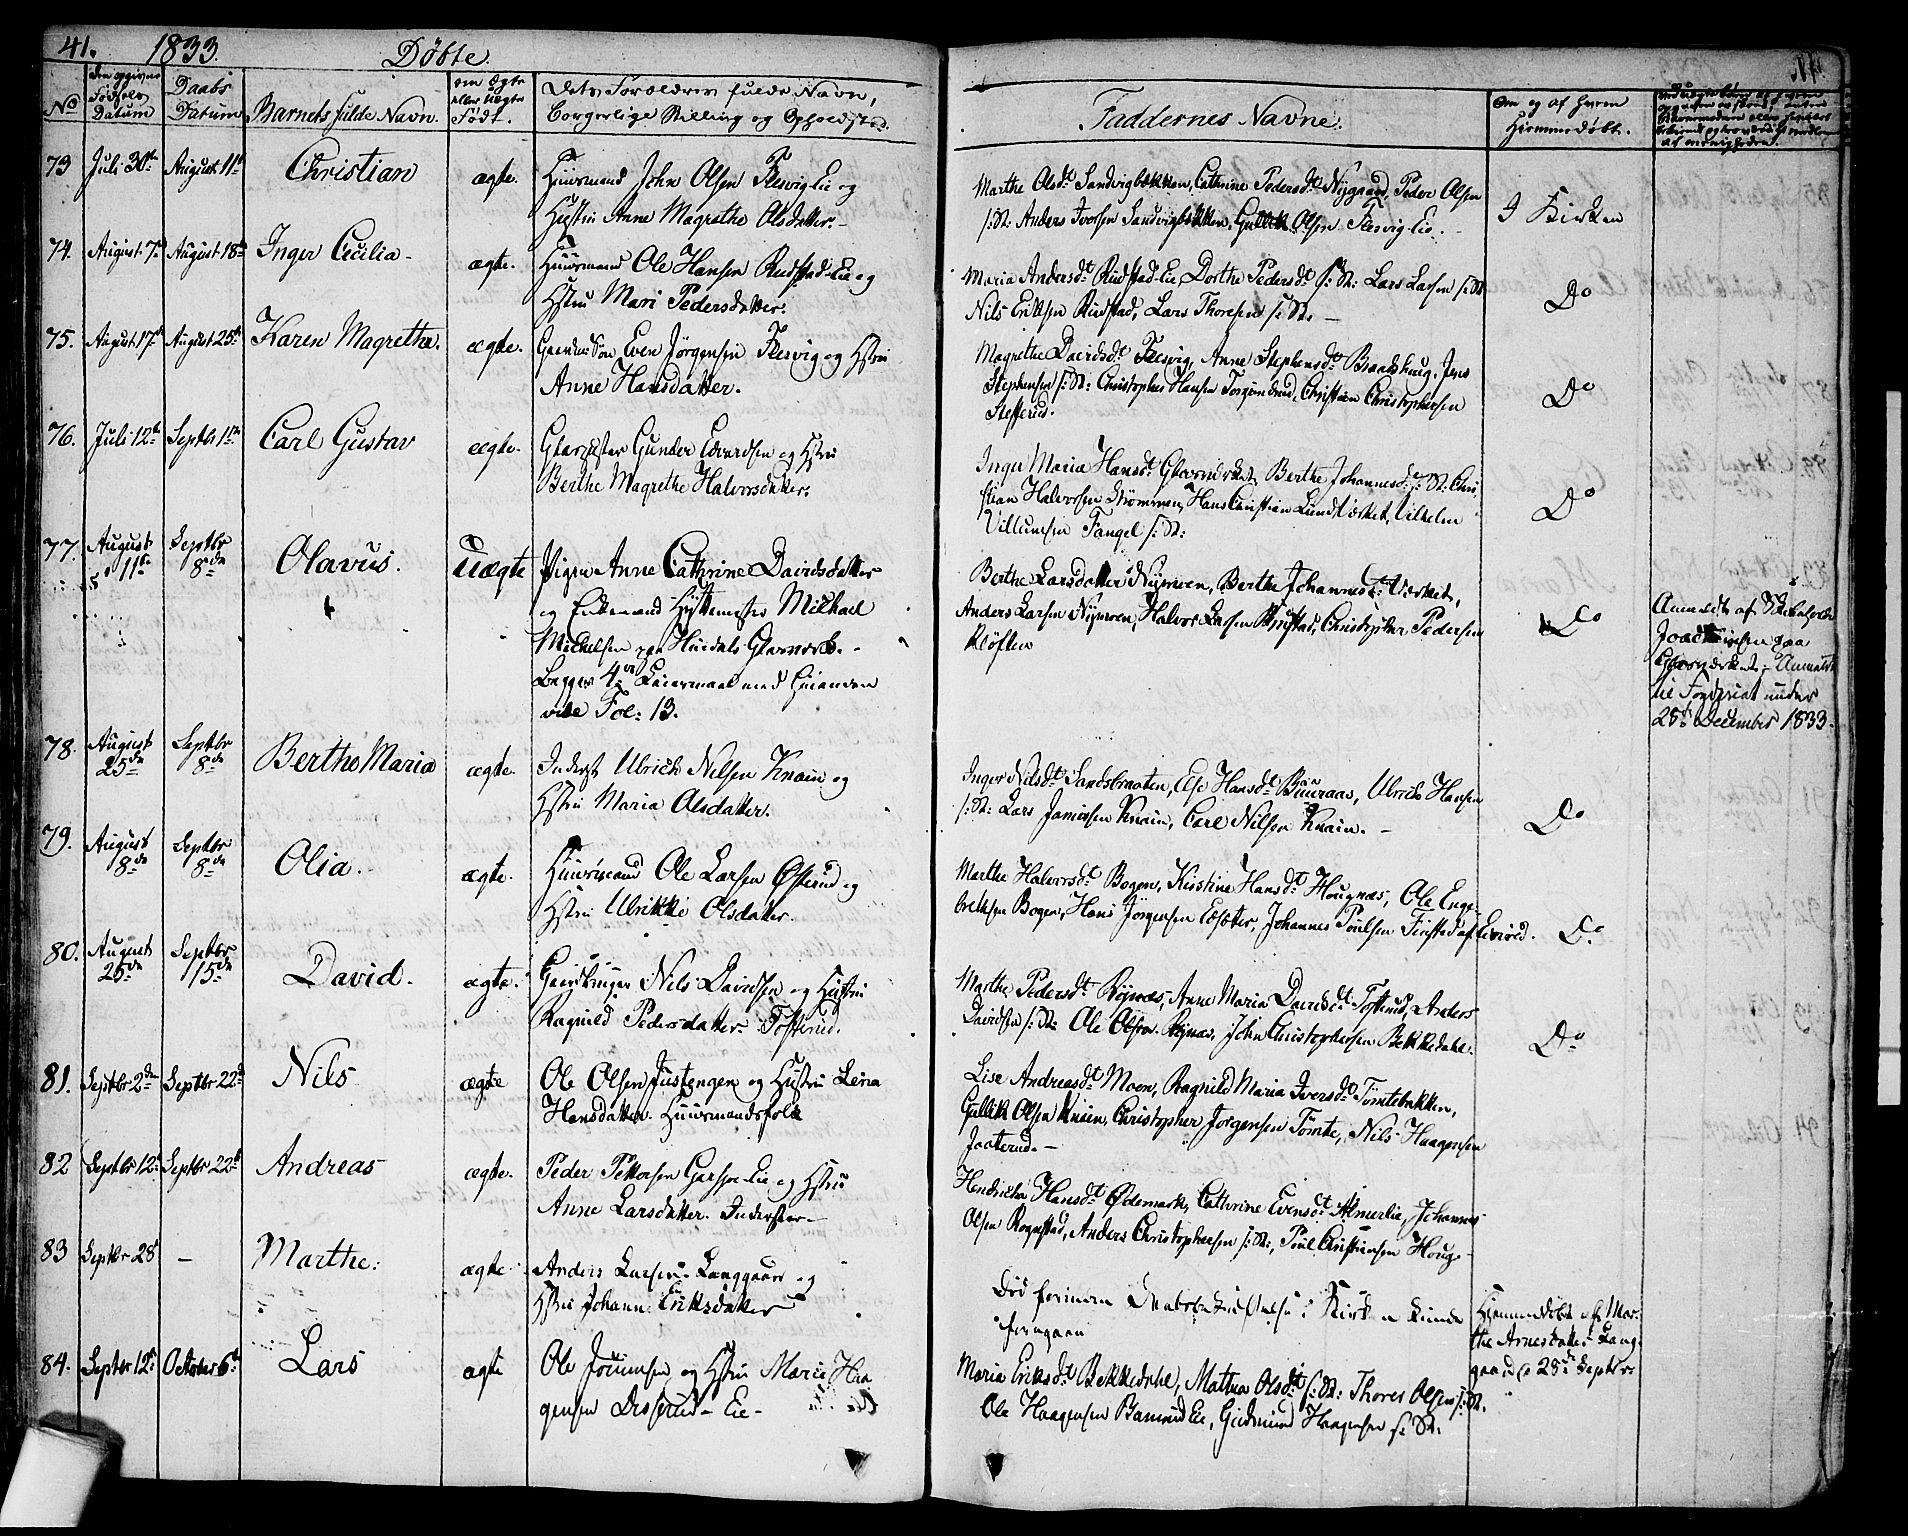 41. 1833. Døbte.
No
den opgivne Fødsels Datum
Daabs Datum
Barnets fulde Navn.
om ægte eller uægte Født.
Dets Forældres fulde Navn,
borgerlige Stilling og Opholdsted.
Faddernes Navne.
Om og af hvem
Hjemmedøbt.
73 Juli 30te August 11te Christian ægte. Huusmand John Olsen Flesvig-Eie og
Hustru Anne Magrethe Olsdatter.-
Marthe Olsdt. Sandvigbækken, Cathrine Pedersdt. Nygaard, Peder Olsen
s: St: Anders Iversen Sandvigbækken, Gullik Olsen Flesvig-Eie.
I Kirken
74. August 7de August 18de Inger Cecilia- ægte. Huusmand Ole Hansen Rudstad-Eie og
Hstru Mari Pedersdatter.
Maria Andersdt. Rudstad-Eie, Dorthe Pedersdt. s: St: Lars Larsen s: St:
Nils Eriksen Rudstad, Lars Thoresen s: St: -
Do
75. August 17de August 25de Karen Magrethe. ægte. Gaardm: Søn Even Jørgensen Flesvig og Hstru
Anne Hansdatter.
Magrethe Davidsdt. Flesvig, Anne Stephensdt. Braatehaug, Jens
Stephensen s: St: Christopher Hansen, Christian Christophersen
Do
76. Juli 12te Septbr 1ste Carl Gustav ægte. Glarpuster Gunder Edvardsen og Hstru
Berthe Magrethe Halvorsdatter.
Inger Maria Hansdt. Glasværket, Berthe Johannesdt. s: St: Chri-
stian Halvorsen Strømmen, Hans Christian Lund Værket, Vilhelm
Villumsen Fangel s: St:
Do
77. August 11te Septbr 8de Olavus. Uægte Pigen Anne Cathrine Davidsdatter
og Enkemand Hyttemester Michael
Michelsen paa Hurdals Glasværk.-
Begges 4de Leiermaal med hinanden
vide Fol: 13.
Berthe Larsdatter Nymoen, Berthe Johannesdt. Værket,
Anders Larsen Nymoen, Halvor Larsen, Christopher Pedersen
Kløften
Do
Anmeldt af
Joachimsen paa
Glasværket. - Anmeldt
til Fogderiet under
28de December 1833.
78. August 25de Septbr 8de Berthe Maria ægte. Inderst Ulrich Nilsen Knain og
Hstru Maria Olsdatter.
Inger Nilsdt. Sandsbraaten, Else Hansdt. Buuraas, Ulrich Hansen
s: St: Lars Jamissen Knain, Carl Nilsen Knain. -
Do
79. August 8de Septbr 8de Olia. ægte. Huusmand Ole Larsen Østerud og
Hstru Ulrikke Olsdatter.
Marthe Halvorsdt. Bogen, Kirstine Hansdt. Hougnæs, Ole Enge-
bretsen Bogen, Hans Jørgensen, Johannes Poulsen Finstad af Eidsvold.
Do
80. August 25de Septbr 15de David. ægte. Gaardbruger Nils Davidsen og Hustru
Ragnild Pedersdatter Tosterud.
Marthe Pedersdt. Røjnæs, Anne Maria Davidsdt. Tosterud, Anders
Davidsen s: St: Ole Olsen Røjnæs, John Christophersen Bekkedahl.
Do
81. Septbr 2den Septbr 22de Nils ægte Ole Olsen Justengen og Hustru Lena
Hansdatter. Huusmandsfolk
Lise Andreasdt. Moen, Ragnild Maria Iversdt. Tømtebækken,
Gullik Olsen Knain, Christopher Jørgensen Tømte, Nils Haagensen
Jaaterud. -
82 Septbr 12te Septbr 22de Andreas ægte. Peder Pettersen Garsjø-Eie og Hstru
Anne Larsdatter. Inderster -
Hendrikka Hansdt. Ødemark, Cathrine Evensdt. Almerlie, Johannes
Olsen Rognstad, Anders Christophersen s: St:, Poul Christiansen Houge-
83 Septbr 28de - Marthe: ægte Anders Larsen Langgaard og
Hstru Johanne Eriksdatter
Død forinden Daabsbekræftelse i Kirken kunde
foregaae
Hjemmedøbt af Mar-
the Arnesdatter Lang-
gaard 28de Septbr.
84. Septbr 12te October 6te Lars ægte Ole Jonunsen og Hstru Marie Haa
gensen Disserud-Eie-
Maria Eriksdt. Bekkedahl, Mathea Olsdt. s: St: Thores Olsen s: St.
Ole Haagensen, Gudmund Haagensen s: St: